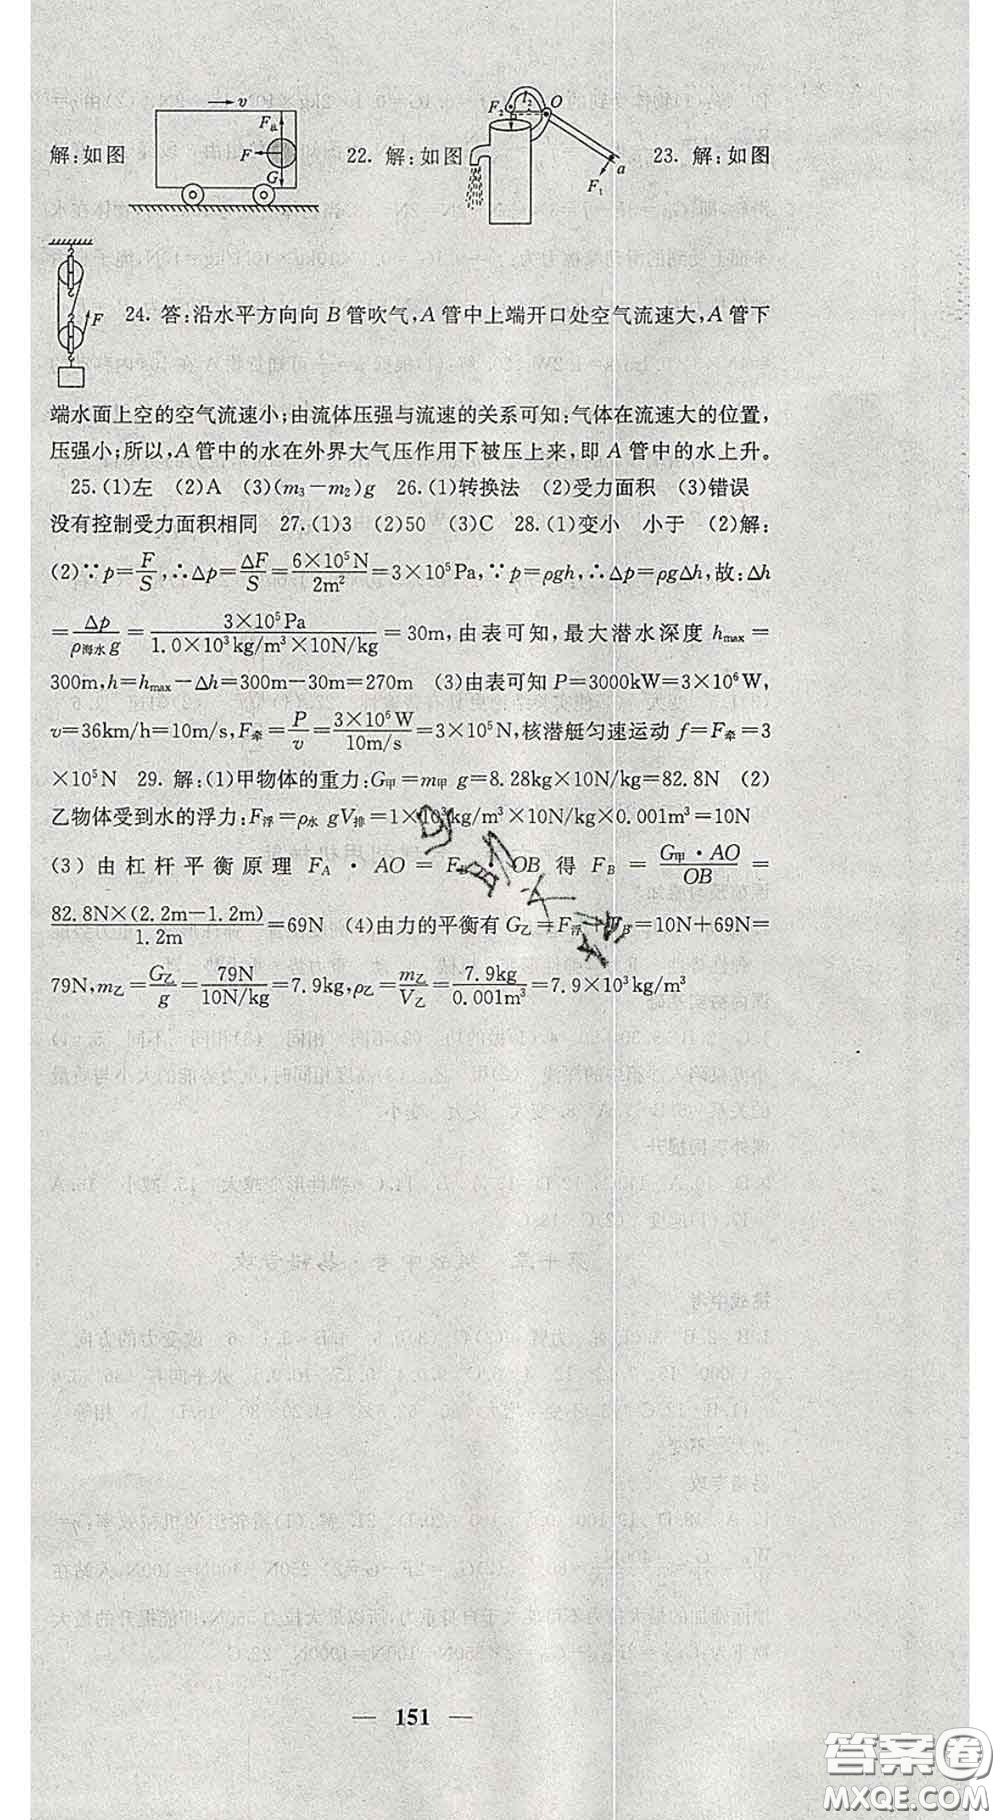 v
F支
F
G
解:如图
22. 解:如图
F₂
l₂
O
a
F₁
23. 解:如图
F
24. 答:沿水平方向向 B 管吹气,A 管中上端开口处空气流速大,A 管下
端水面上空的空气流速小;由流体压强与流速的关系可知:气体在流速大的位置,
压强小;所以,A 管中的水在外界大气压作用下被压上来,即 A 管中的水上升。
25.(1)左 (2)A (3)(m₃-m₂)g 26.(1)转换法 (2)受力面积 (3)错误
没有控制受力面积相同 27.(1)3 (2)50 (3)C 28.(1)变小 小于 (2)解:
(2)∵p=F/S,∴Δp=ΔF/S=6×10⁵N/2m²=3×10⁵Pa,∵p=ρgh,∴Δp=ρgΔh,故:Δh
=Δp/ρ海水g=3×10⁵Pa/1.0×10³kg/m³×10N/kg=30m,由表可知,最大潜水深度 hmax=
300m,h=hmax-Δh=300m-30m=270m (3)由表可知 P=3000kW=3×10⁶W,
v=36km/h=10m/s,F牵=P/v=3×10⁶W/10m/s=3×10⁵N,核潜艇匀速运动 f=F牵=3
×10⁵N 29. 解:(1)甲物体的重力:G甲=m甲 g=8.28kg×10N/kg=82.8N (2)
乙物体受到水的浮力:F浮=ρ水 gV排=1×10³kg/m³×10N/kg×0.001m³=10N
(3)由杠杆平衡原理 FA·AO=FB·OB 得 FB=G甲·AO/OB=
82.8N×(2.2m-1.2m)/1.2m=69N (4)由力的平衡有 G乙=F浮+FB=10N+69N=
79N,m乙=G乙/g=79N/10N/kg=7.9kg,ρ乙=m乙/V乙=7.9kg/0.001m³=7.9×10³kg/m³
— 151 —
答案圈
MXQE.COM